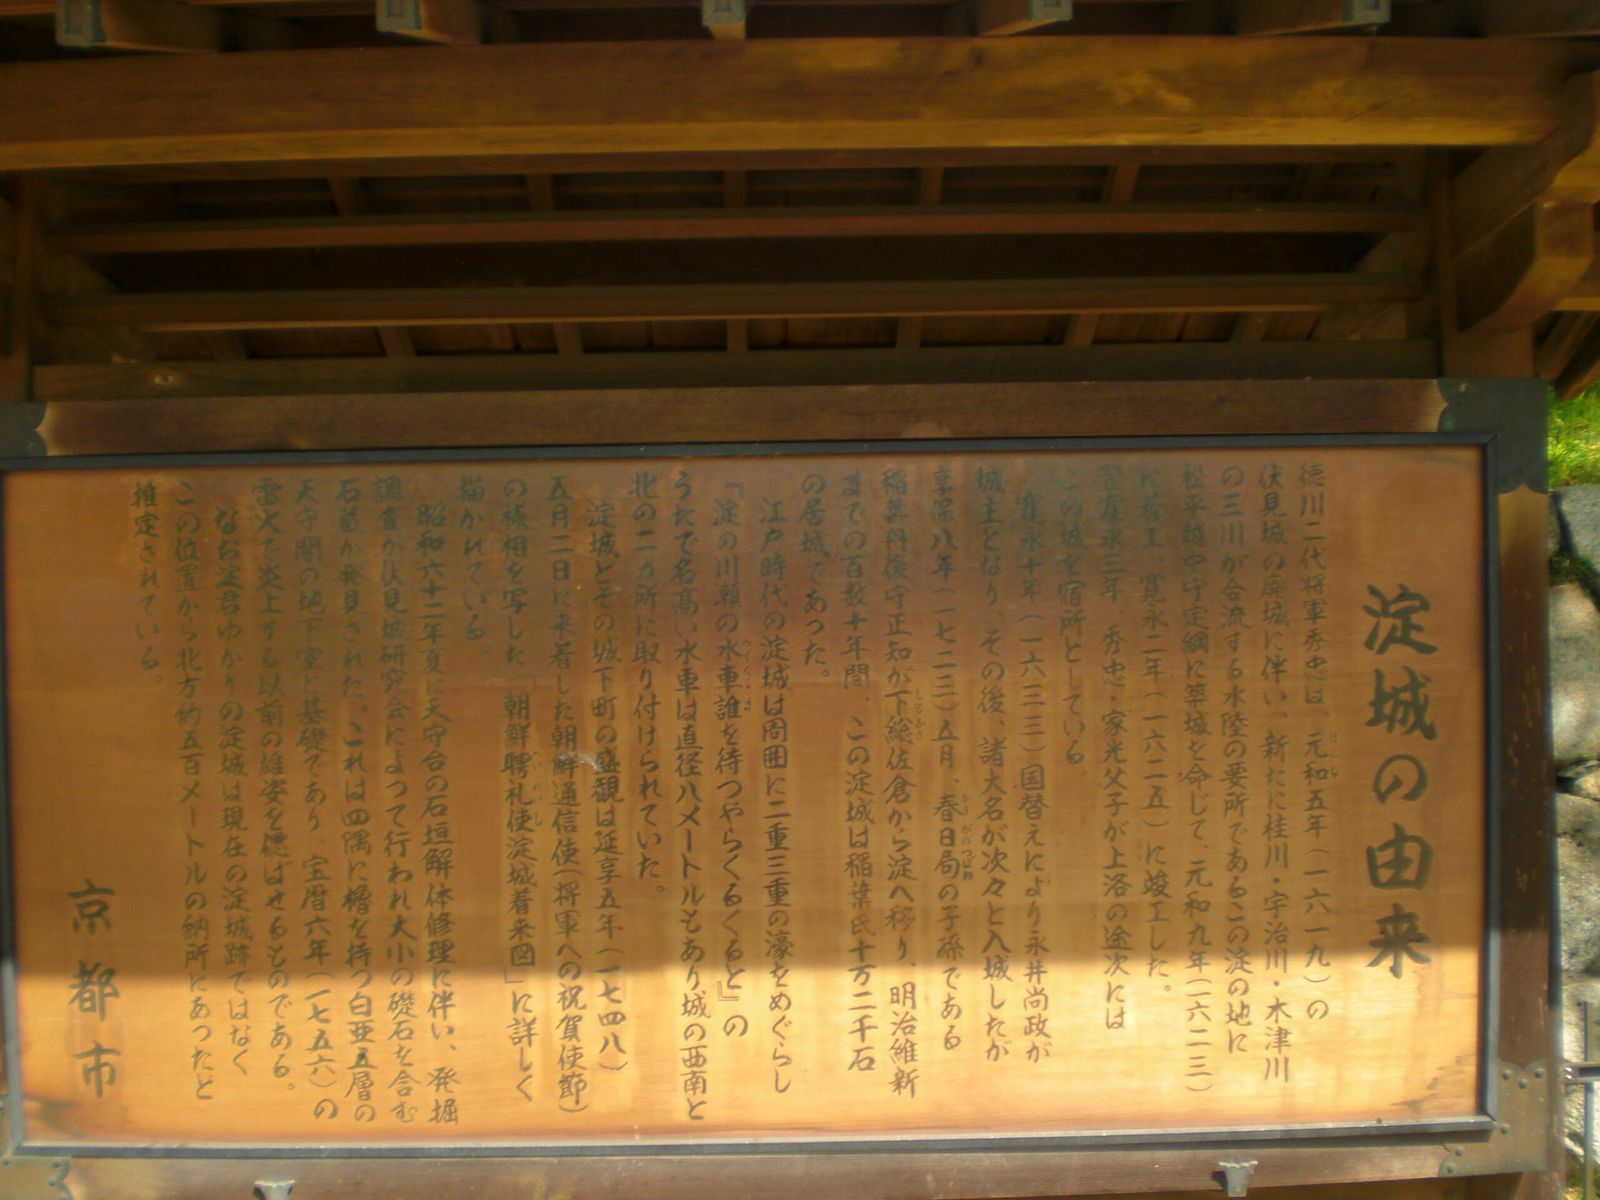 淀城の由来
徳川二代将軍秀忠は、元和五年(一六一九)の
伏見城の廃城に伴い、新たに桂川・宇治川・木津川
の三川が合流する水陸の要所であるこの淀の地に
松平越中守定綱に築城を命じて、元和九年(一六二三)
に着工、寛永二年(一六二五)に竣工した。
翌寛永三年 秀忠・家光父子が上洛の途次には
この城を宿所としている。
寛永十年(一六三三)国替えにより永井尚政が
城主となり、その後、諸大名が次々と入城したが
享保八年(一七二三)五月、春日局の子孫である
稲葉丹後守正知が下総佐倉から淀へ移り、明治維新
までの百数十年間、この淀城は稲葉氏十万二千石
の居城であった。
江戸時代の淀城は周囲に二重三重の濠をめぐらし
『淀の川瀬の水車誰を待つやらくるくると』の
うたで名高い水車は直径八メートルもあり城の西南と
北の二カ所に取り付けられていた。
淀城とその城下町の盛観は延享五年(一七四八)
五月二日に来着した朝鮮通信使(将軍への祝賀使節)
の様相を写した「朝鮮聘礼使淀城着来図」に詳しく
描かれている。
昭和六十二年夏に天守台の石垣解体修理に伴い、発掘
調査が伏見城研究会によって行われ大小の礎石を含む
石蔵が発見された。これは四隅に櫓を持つ白亜五層の
天守閣の地下室と基礎であり、宝暦六年(一七五六)の
雷火で炎上する以前の雄姿を偲ばせるものである。
なお淀君ゆかりの淀城は現在の淀城跡ではなく
この位置から北方約五百メートルの納所にあったと
推定されている。
京都市